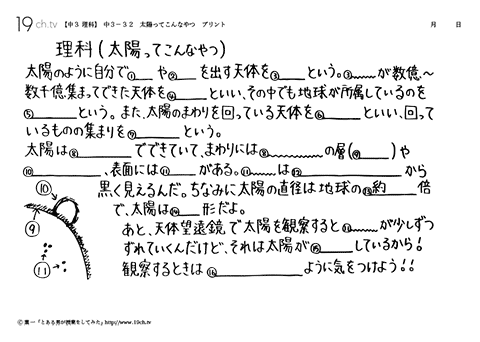 19ch.tv 【中3 理科】 中3-32 太陽ってこんなやつ プリント 月 日
理科(太陽ってこんなやつ)
太陽のように自分で①__や②__を出す天体を③____という。③〰〰が数億～
数千億集まってできた天体を④____といい、その中でも地球が所属しているのを
⑤____という。また、太陽のまわりを回っている天体を⑥____といい、回って
いるものの集まりを⑦____という。
太陽は⑧____でできていて、まわりには⑧〰〰の層(⑨____)や
⑩____、表面には⑪____がある。⑪〰〰は⑫____から
黒く見えるんだ。ちなみに太陽の直径は地球の⑬約____倍
で、太陽は⑭__形だよ。
⑩
⑨
⑪
あと、天体望遠鏡で太陽を観察すると⑪〰〰が少しずつ
ずれていくんだけど、それは太陽が⑮____しているから!
観察するときは⑯____ように気をつけよう!!
© 葉一「とある男が授業をしてみた」http://www.19ch.tv